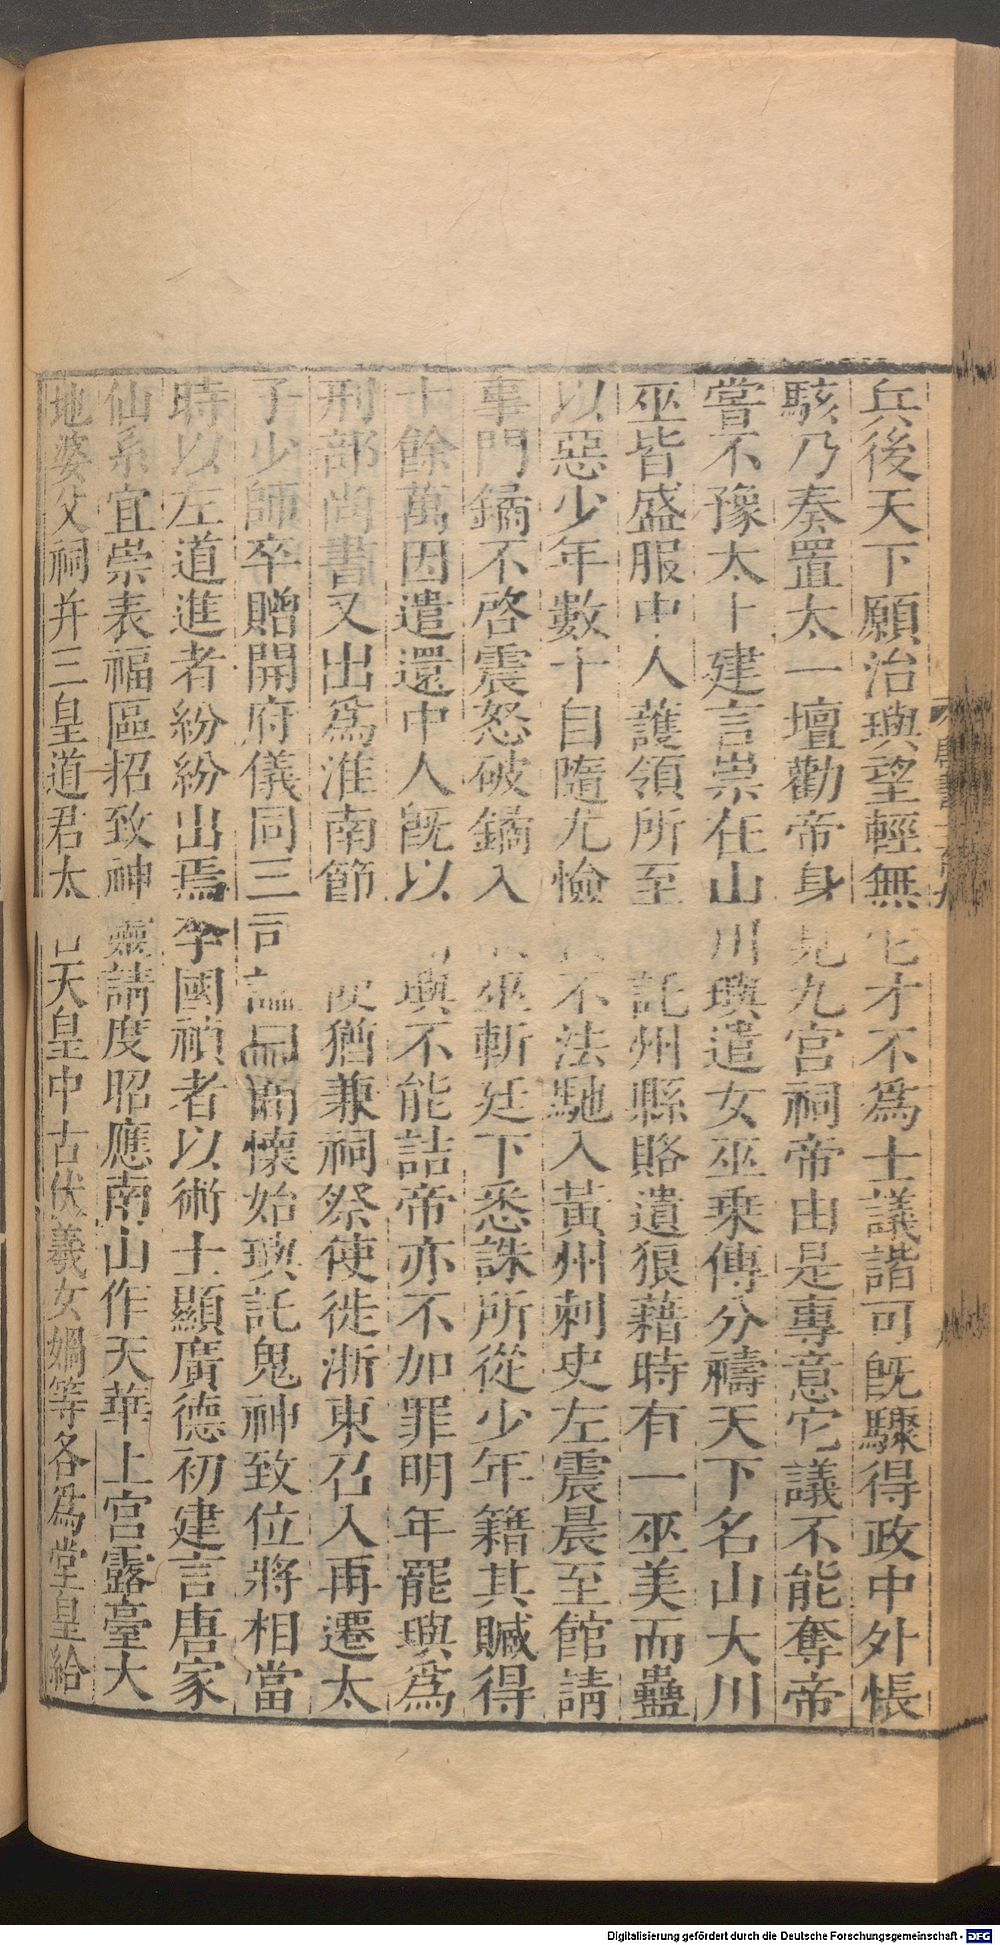 兵後天下願治璵望輕無它才不爲士議諧可旣驟得政中外悵
駭乃奏置太一壇勸帝身見九宮祠帝由是專意它議不能奪帝
嘗不豫太卜建言崇在山川璵遣女巫乗傳分禱天下名山大川
巫皆盛服中人護領所至託州縣賂遺狼藉時有一巫美而蠱
以惡少年數十自隨尤憸不法馳入黃州刺史左震晨至館請
事門鐍不啓震怒破鐍入巫斬廷下悉誅所從少年籍其贓得
十餘萬因遣還中人旣以璵不能詰帝亦不加罪明年罷璵爲
刑部尚書又出爲淮南節猶兼祠祭使徙浙東召入再遷太
子少師卒贈開府儀同三懷始璵託鬼神致位將相當
時以左道進者紛紛出焉李國禎者以術士顯廣德初建言唐家
仙系宜崇表福區招致神靈請度昭應南山作天華上宮露臺大
地婆父祠并三皇道君太古天皇中古伏羲女媧等各爲堂皇給
Digitalisierung gefördert durch die Deutsche Forschungsgemeinschaft - DFG